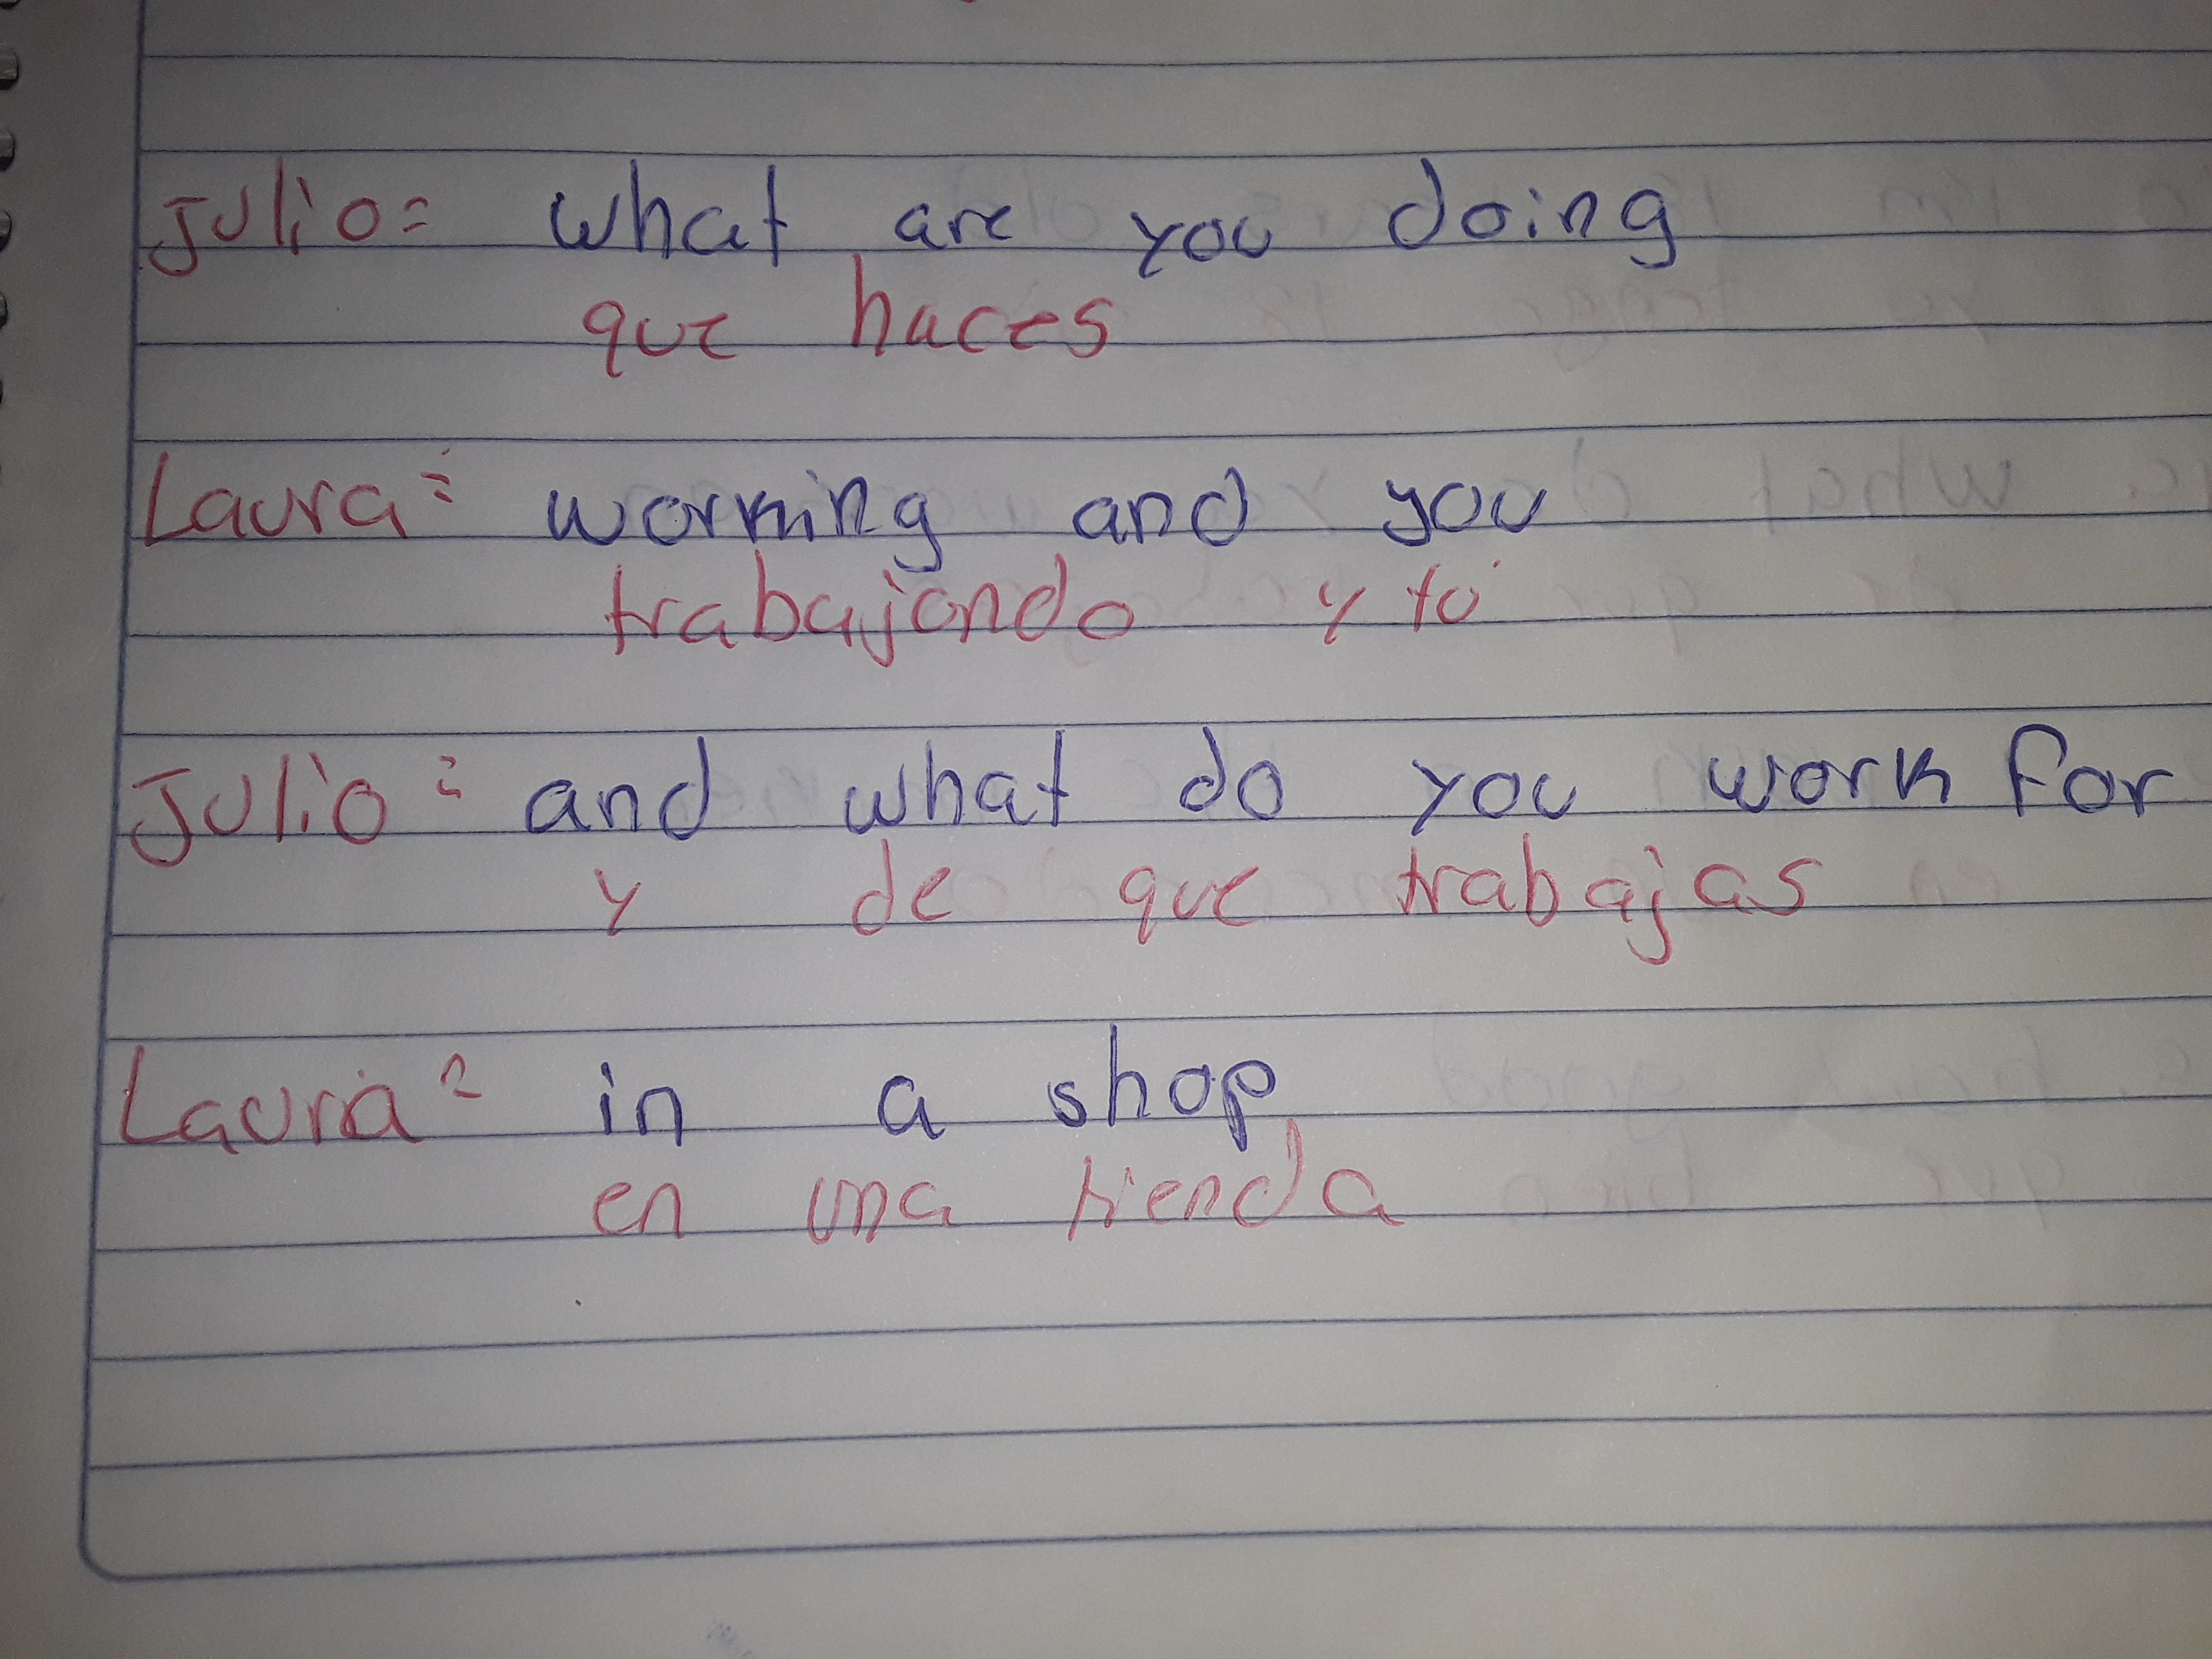 Julio= what are you doing
que haces
Laura= working and you
trabajando y tú
Julio= and what do you work for
y de que trabajas
Laura= in a shop
en una tienda